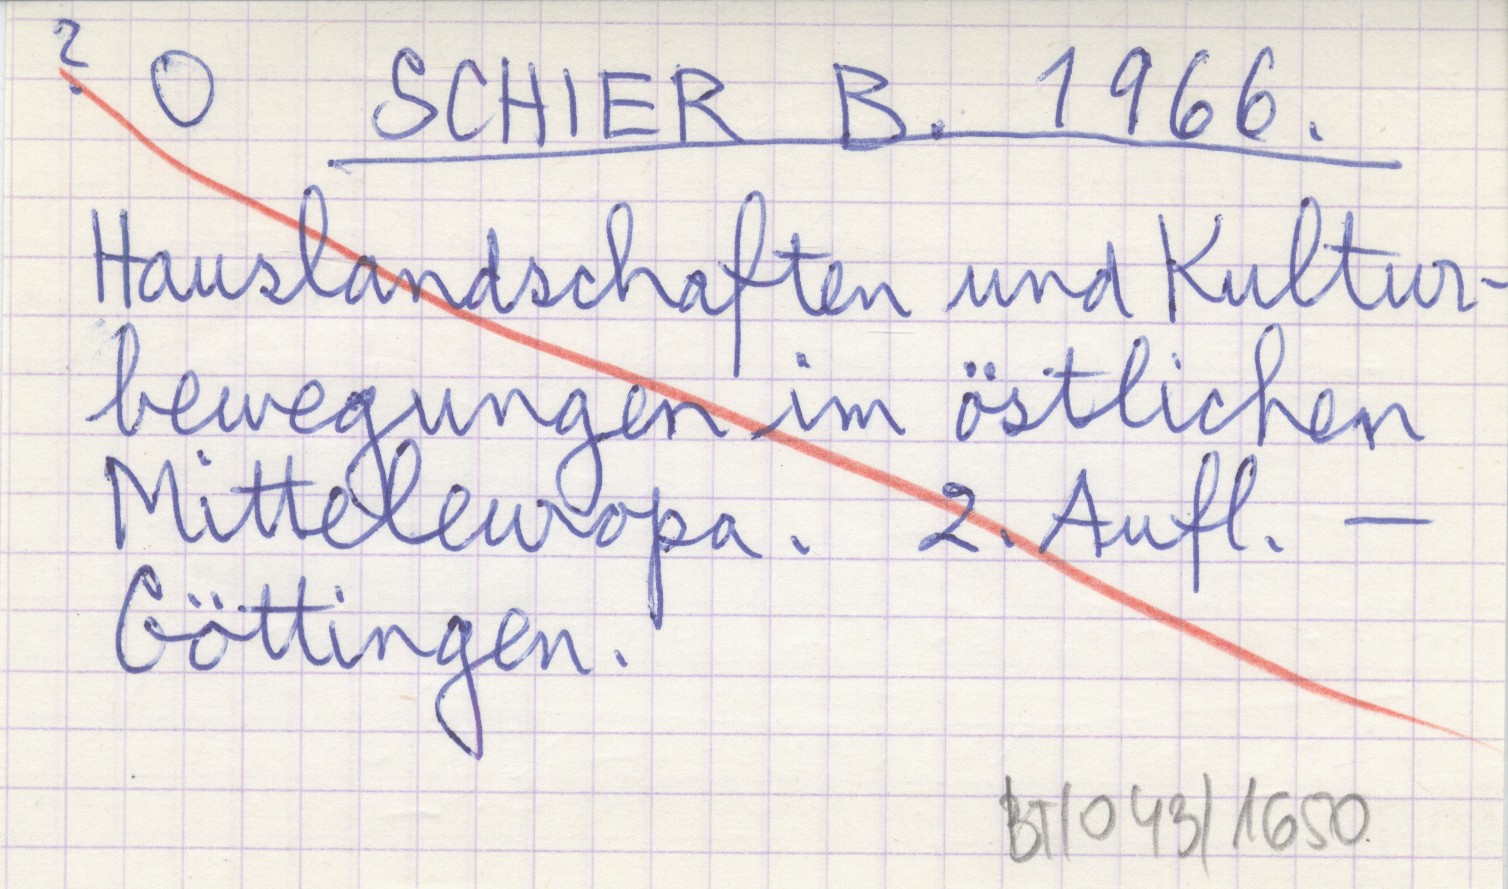 ? O SCHIER B. 1966.
Hauslandschaften und Kultur-
bewegungen im östlichen
Mitteleuropa. 2. Aufl. —
Göttingen.
BT/043/1650